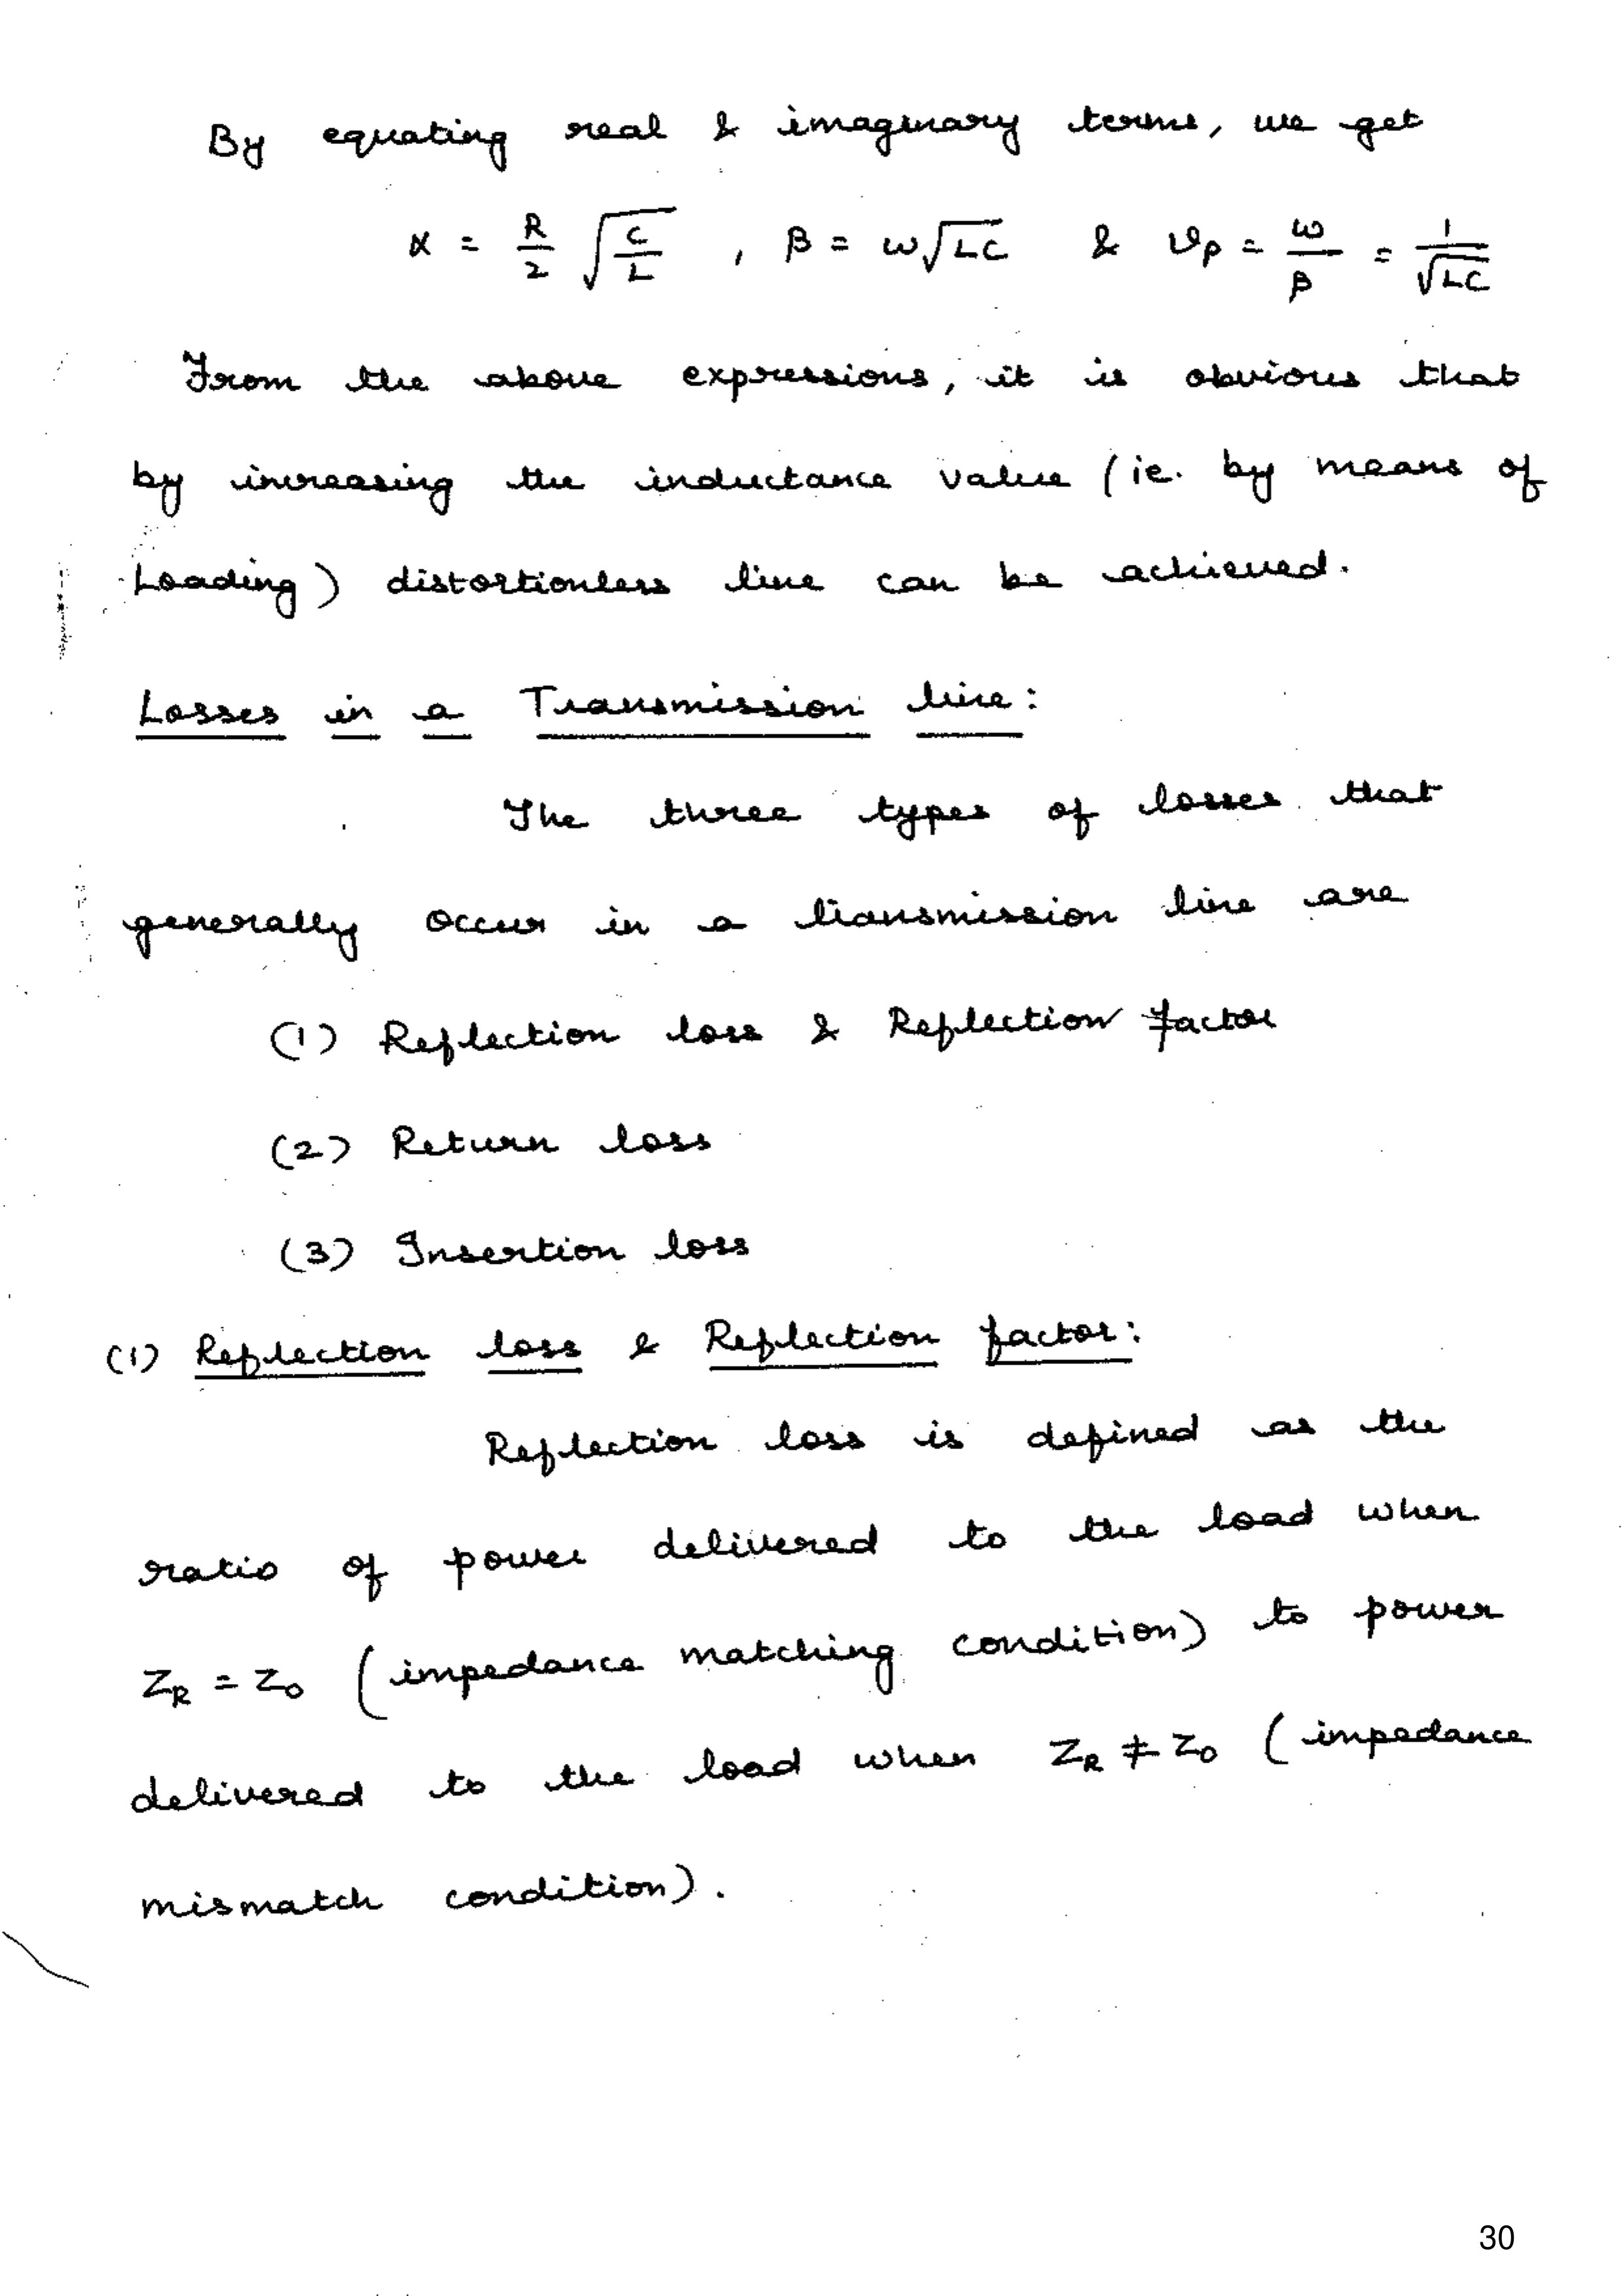 By equating real & imaginary terms, we get
α = R/2 √(C/L) , β = ω√LC & υp = ω/β = 1/√LC
From the above expressions, it is obvious that
by increasing the inductance value (ie. by means of
Loading) distortionless line can be achieved.
Losses in a Transmission line:
The three types of losses that
generally occur in a transmission line are
(1) Reflection loss & Reflection factor
(2) Return loss
(3) Insertion loss
(1) Reflection loss & Reflection factor:
Reflection loss is defined as the
ratio of power delivered to the load when
ZR = Z0 (impedance matching condition) to power
delivered to the load when ZR ≠ Z0 (impedance
mismatch condition).
30